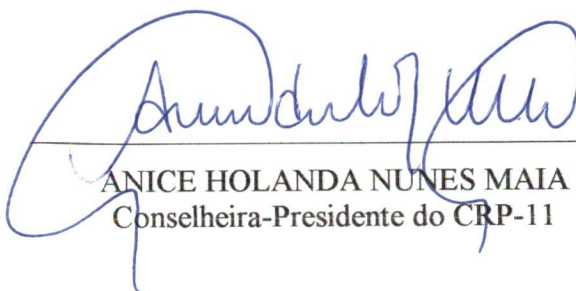 ANICE HOLANDA NUNES MAIA
Conselheira-Presidente do CRP-11